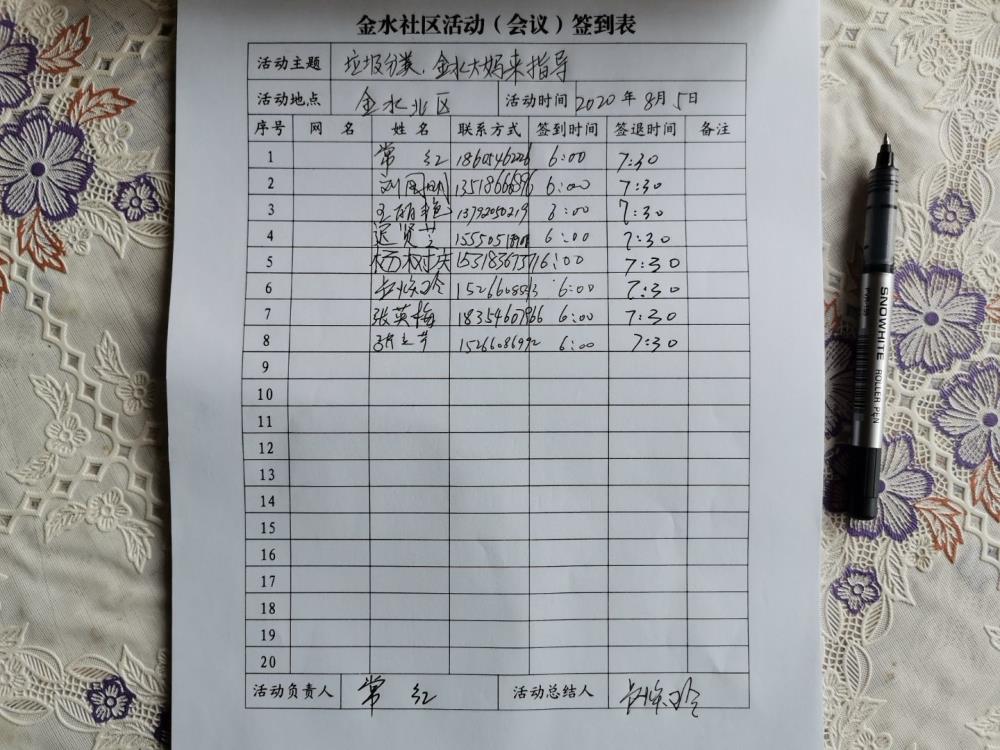 金水社区活动（会议）签到表
活动主题 垃圾分类，金水大妈来指导
活动地点 金水北区 活动时间 2020年8月5日
序号 网 名 姓 名 联系方式 签到时间 签退时间 备注
1 常 红 6:00 7:30
2 6:00 7:30
3 王丽艳 13792050219 6:00 7:30
4 迟贤芝 6:00 7:30
5 杨树庆 6:00 7:30
6 6:00 7:30
7 张英梅 18354607966 6:00 7:30
8 15266086992 6:00 7:30
9
10
11
12
13
14
15
16
17
18
19
20
活动负责人 常 红 活动总结人
SNOWHITE ROLLER PEN